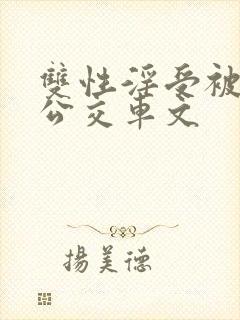 雙性淫受被
公交車文
揚美德